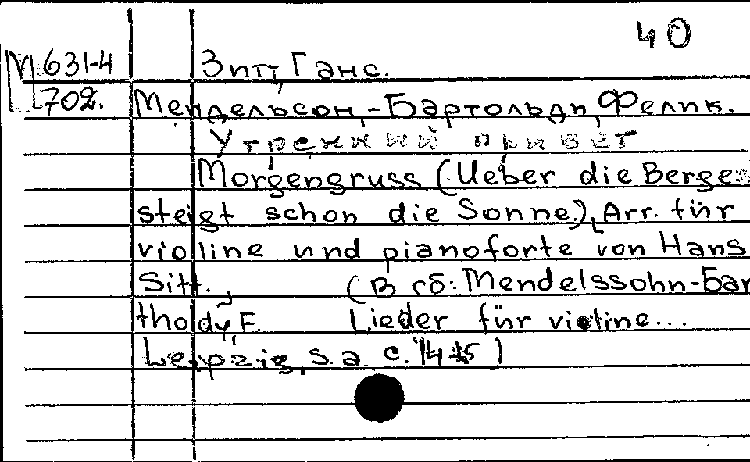 40
М 631-4 Зитт, Ганс.
702. Мендельсон,-Бартольди, Феликс.
Утренний привет
Morgengruss (Ueber die Berge
steigt schon die Sonne.), Arr. für
violine und pianoforte von Hans
Sitt. (В сб: Mendelssohn-Bar
tholdy, F. Lieder für violine...
Leipzig, s.a c. 14-15)